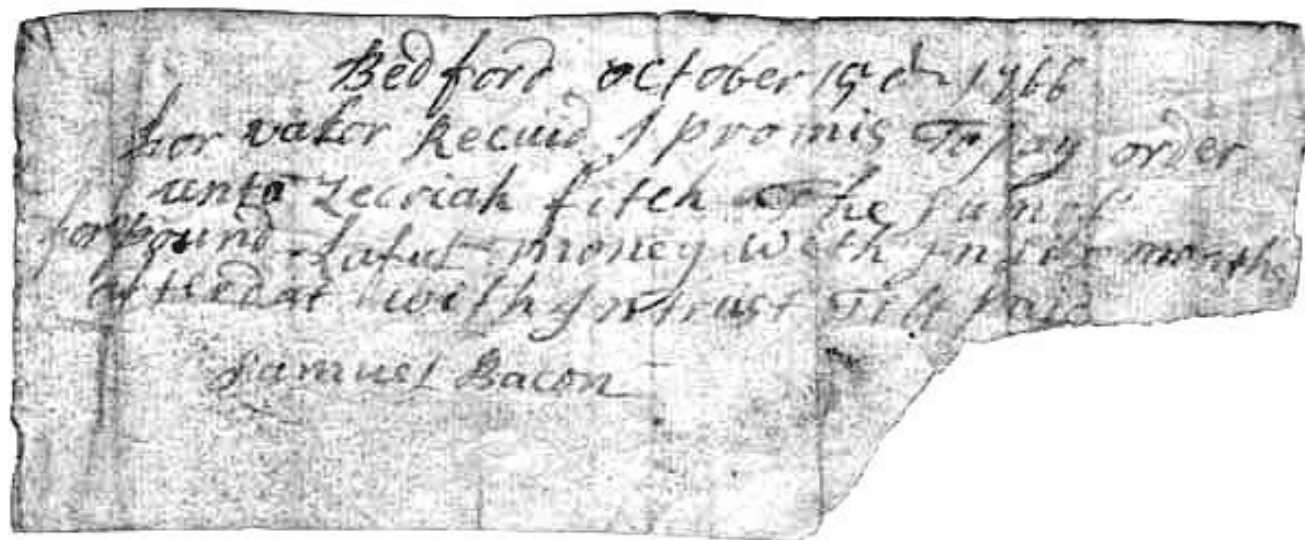 Bedford october 1766
for valor Recuid I promis To pay order
unto Zecriah fitch The sum of
pound Laful money with In months
after dat with Intrust Till paid
Samuel Bacon